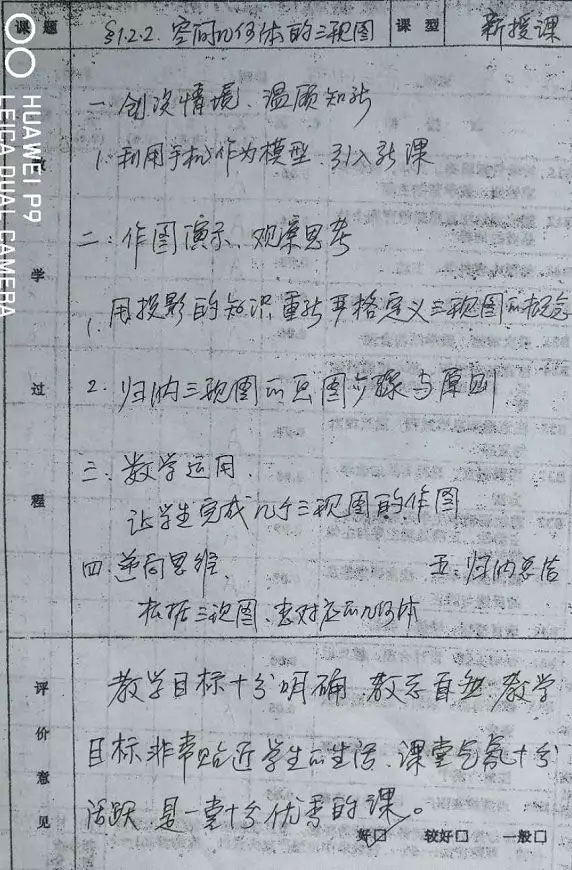 课题 §1.2.2. 空间几何体的三视图 课型 新授课
一 创设情境、温顾知新
1. 利用手机作为模型 引入新课
二: 作图演示、观察思考
1. 用投影的知识 重新严格定义三视图的概念
2. 归纳三视图的画图步骤与原则
三: 数学运用.
让学生完成几个三视图的作图
四 逆向思维. 五: 归纳总结
根据三视图、去对应的几何体
教学过程
评价意见
教学目标十分明确 教态自然 教学
目标非常贴近学生的生活、课堂气氛十分
活跃 是一堂十分优秀的课。
好□ 较好□ 一般□
HUAWEI P9
LEICA DUAL CAMERA